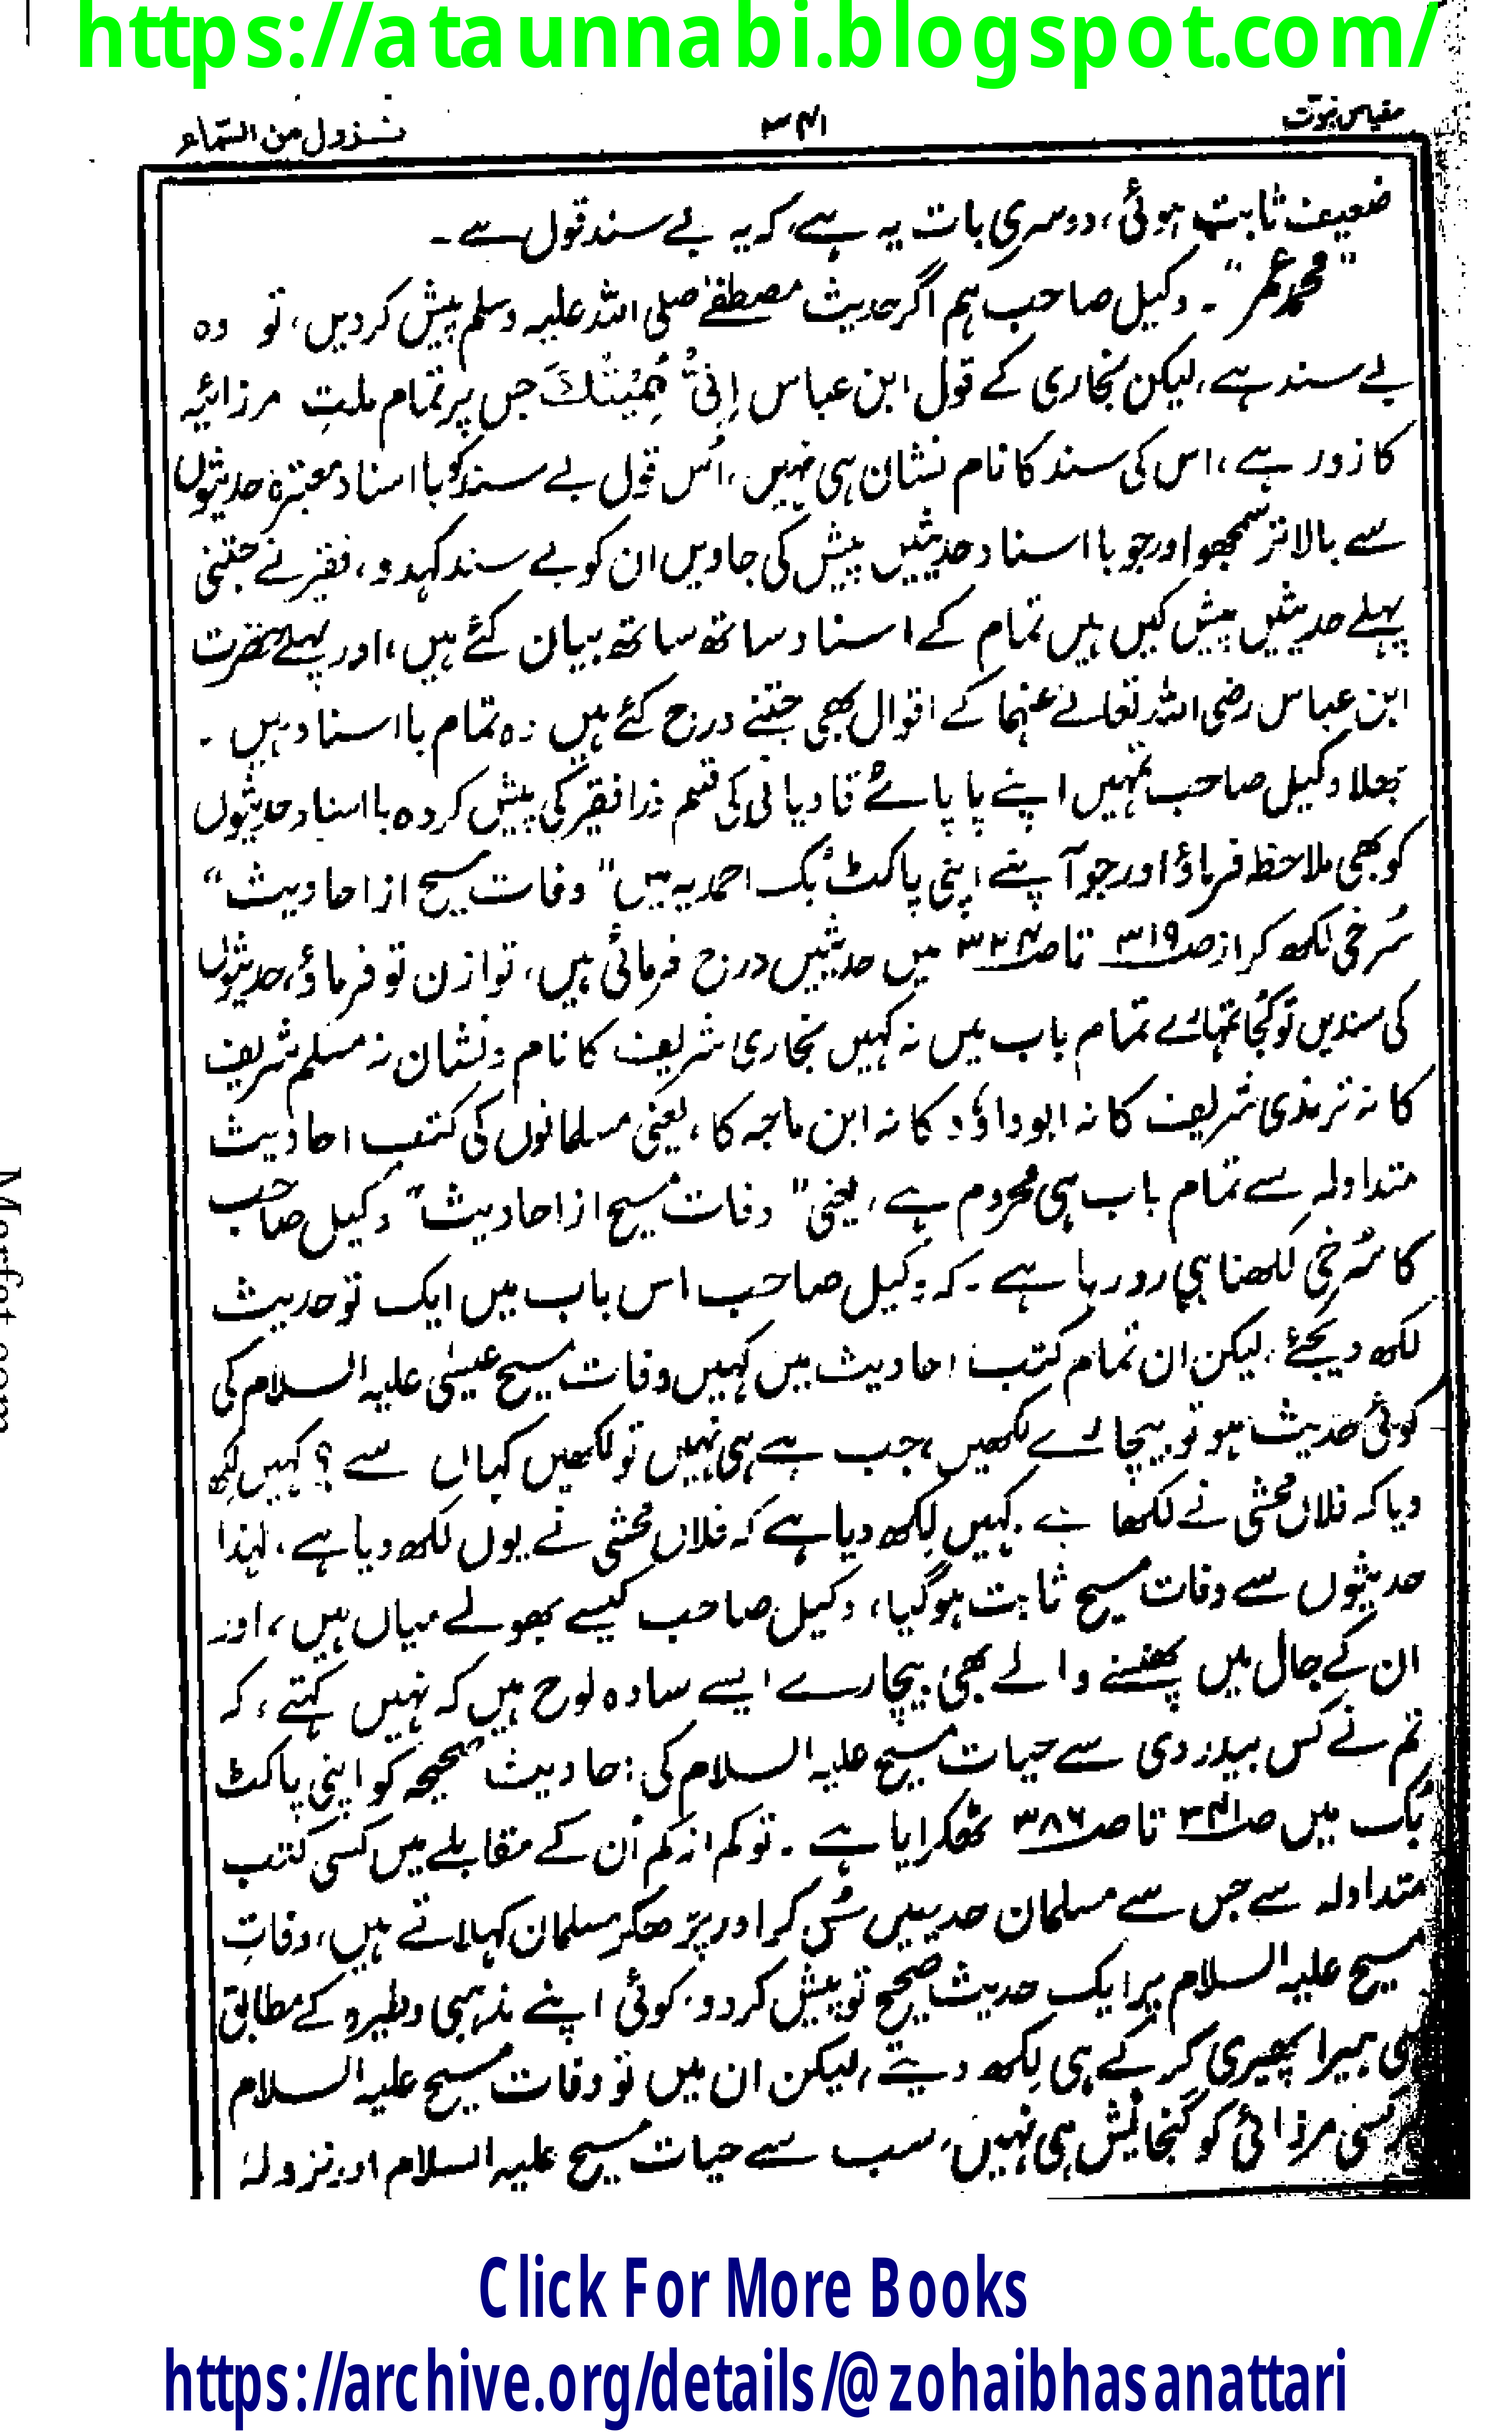 https://ataunnabi.blogspot.com/
مقیاس نبوت
۳۴۱
نزول من السماء
ضعیف ثابت ہوئی، دوسری بات یہ ہے، کہ یہ بے سند قول ہے۔
"محمد عمر"۔ وکیل صاحب ہم اگر حدیث مصطفےٰ صلی اللہ علیہ وسلم پیش کردیں، تو وہ
بے سند ہے، لیکن بخاری کے قول ابن عباس اِنِّیْ مُمِیْتُکَ جس پر تمام ملتِ مرزائیہ
کا زور ہے، اس کی سند کا نام نشان ہی نہیں، اُس قول بے سند کو با اسناد معتبرہ حدیثوں
سے بالاتر سمجھو اور جو با اسناد حدیثیں پیش کی جاویں ان کو بے سند کہدو، فقیر نے جتنی
پہلے حدیثیں پیش کیں ہیں تمام کے اسناد ساتھ ساتھ بیان کئے ہیں، اور پہلے حضرت
ابن عباس رضی اللہ تعالےٰ عنہما کے اقوال بھی جتنے درج کئے ہیں وہ تمام با اسناد ہیں۔
بھلا وکیل صاحب تمہیں اپنے پاپائے قادیانی کی قسم ذرا فقیر کی پیش کردہ با اسناد حدیثوں
کو بھی ملاحظہ فرماؤ اور جو آپنے اپنی پاکٹ بُک احمدیہ میں "وفات مسیح از احادیث"
سُرخی لکھ کر از صـ۳۱۹ تا صـ۳۲۴ میں حدیثیں درج فرمائی ہیں، توازن تو فرماؤ، حدیثوں
کی سندیں تو کُجا تمہارے تمام باب میں نہ کہیں بخاری شریف کا نام ونشان نہ مسلم شریف
کا نہ ترمذی شریف کا نہ ابوداؤد کا نہ ابن ماجہ کا، یعنی مسلمانوں کی کتب احادیث
متداولہ سے تمام باب ہی محروم ہے، یعنی "وفات مسیح از احادیث" وکیل صاحب
کا سُرخی لکھنا ہی رو رہا ہے۔ کہ وکیل صاحب اس باب میں ایک تو حدیث
لکھ دیجئے، لیکن ان تمام کتب احادیث میں کہیں وفات مسیح عیسیٰ علیہ السلام کی
کوئی حدیث ہو تو بیچارے لکھیں، جب ہے ہی نہیں تو لکھیں کہاں سے؟ کہیں لکھ
دیا کہ فلاں محشی نے لکھا ہے۔ کہیں لکھ دیا ہے کہ فلاں محشی نے یوں لکھ دیا ہے، لہذا
حدیثوں سے وفات مسیح ثابت ہوگیا، وکیل صاحب کیسے بھولے میاں ہیں، اور
ان کے جال میں پھنسنے والے بھی بیچارے ایسے سادہ لوح ہیں کہ نہیں کہتے، کہ
تم نے کس بیدردی سے حیات مسیح علیہ السلام کی احادیث صحیحہ کو اپنی پاکٹ
بُک میں صـ۳۴۱ تا صـ۳۸۶ ٹھکرایا ہے۔ تو کم از کم اُن کے مقابلے میں کسی کتب
متداولہ سے جس سے مسلمان حدیثیں سُن کر اور پڑھکر مسلمان کہلاتے ہیں، وفاتِ
مسیح علیہ السلام پر ایک حدیث صحیح تو پیش کردو، کوئی اپنے مذہبی وطیرہ کے مطابق
ہی ہیرا پھیری کرکے ہی لکھ دیتے، لیکن ان میں تو وفات مسیح علیہ السلام
کسی مرزائی کو گنجائیش ہی نہیں، سب سے حیات مسیح علیہ السلام اور نزولہٗ
Marfat.com
Click For More Books
https://archive.org/details/@zohaibhasanattari